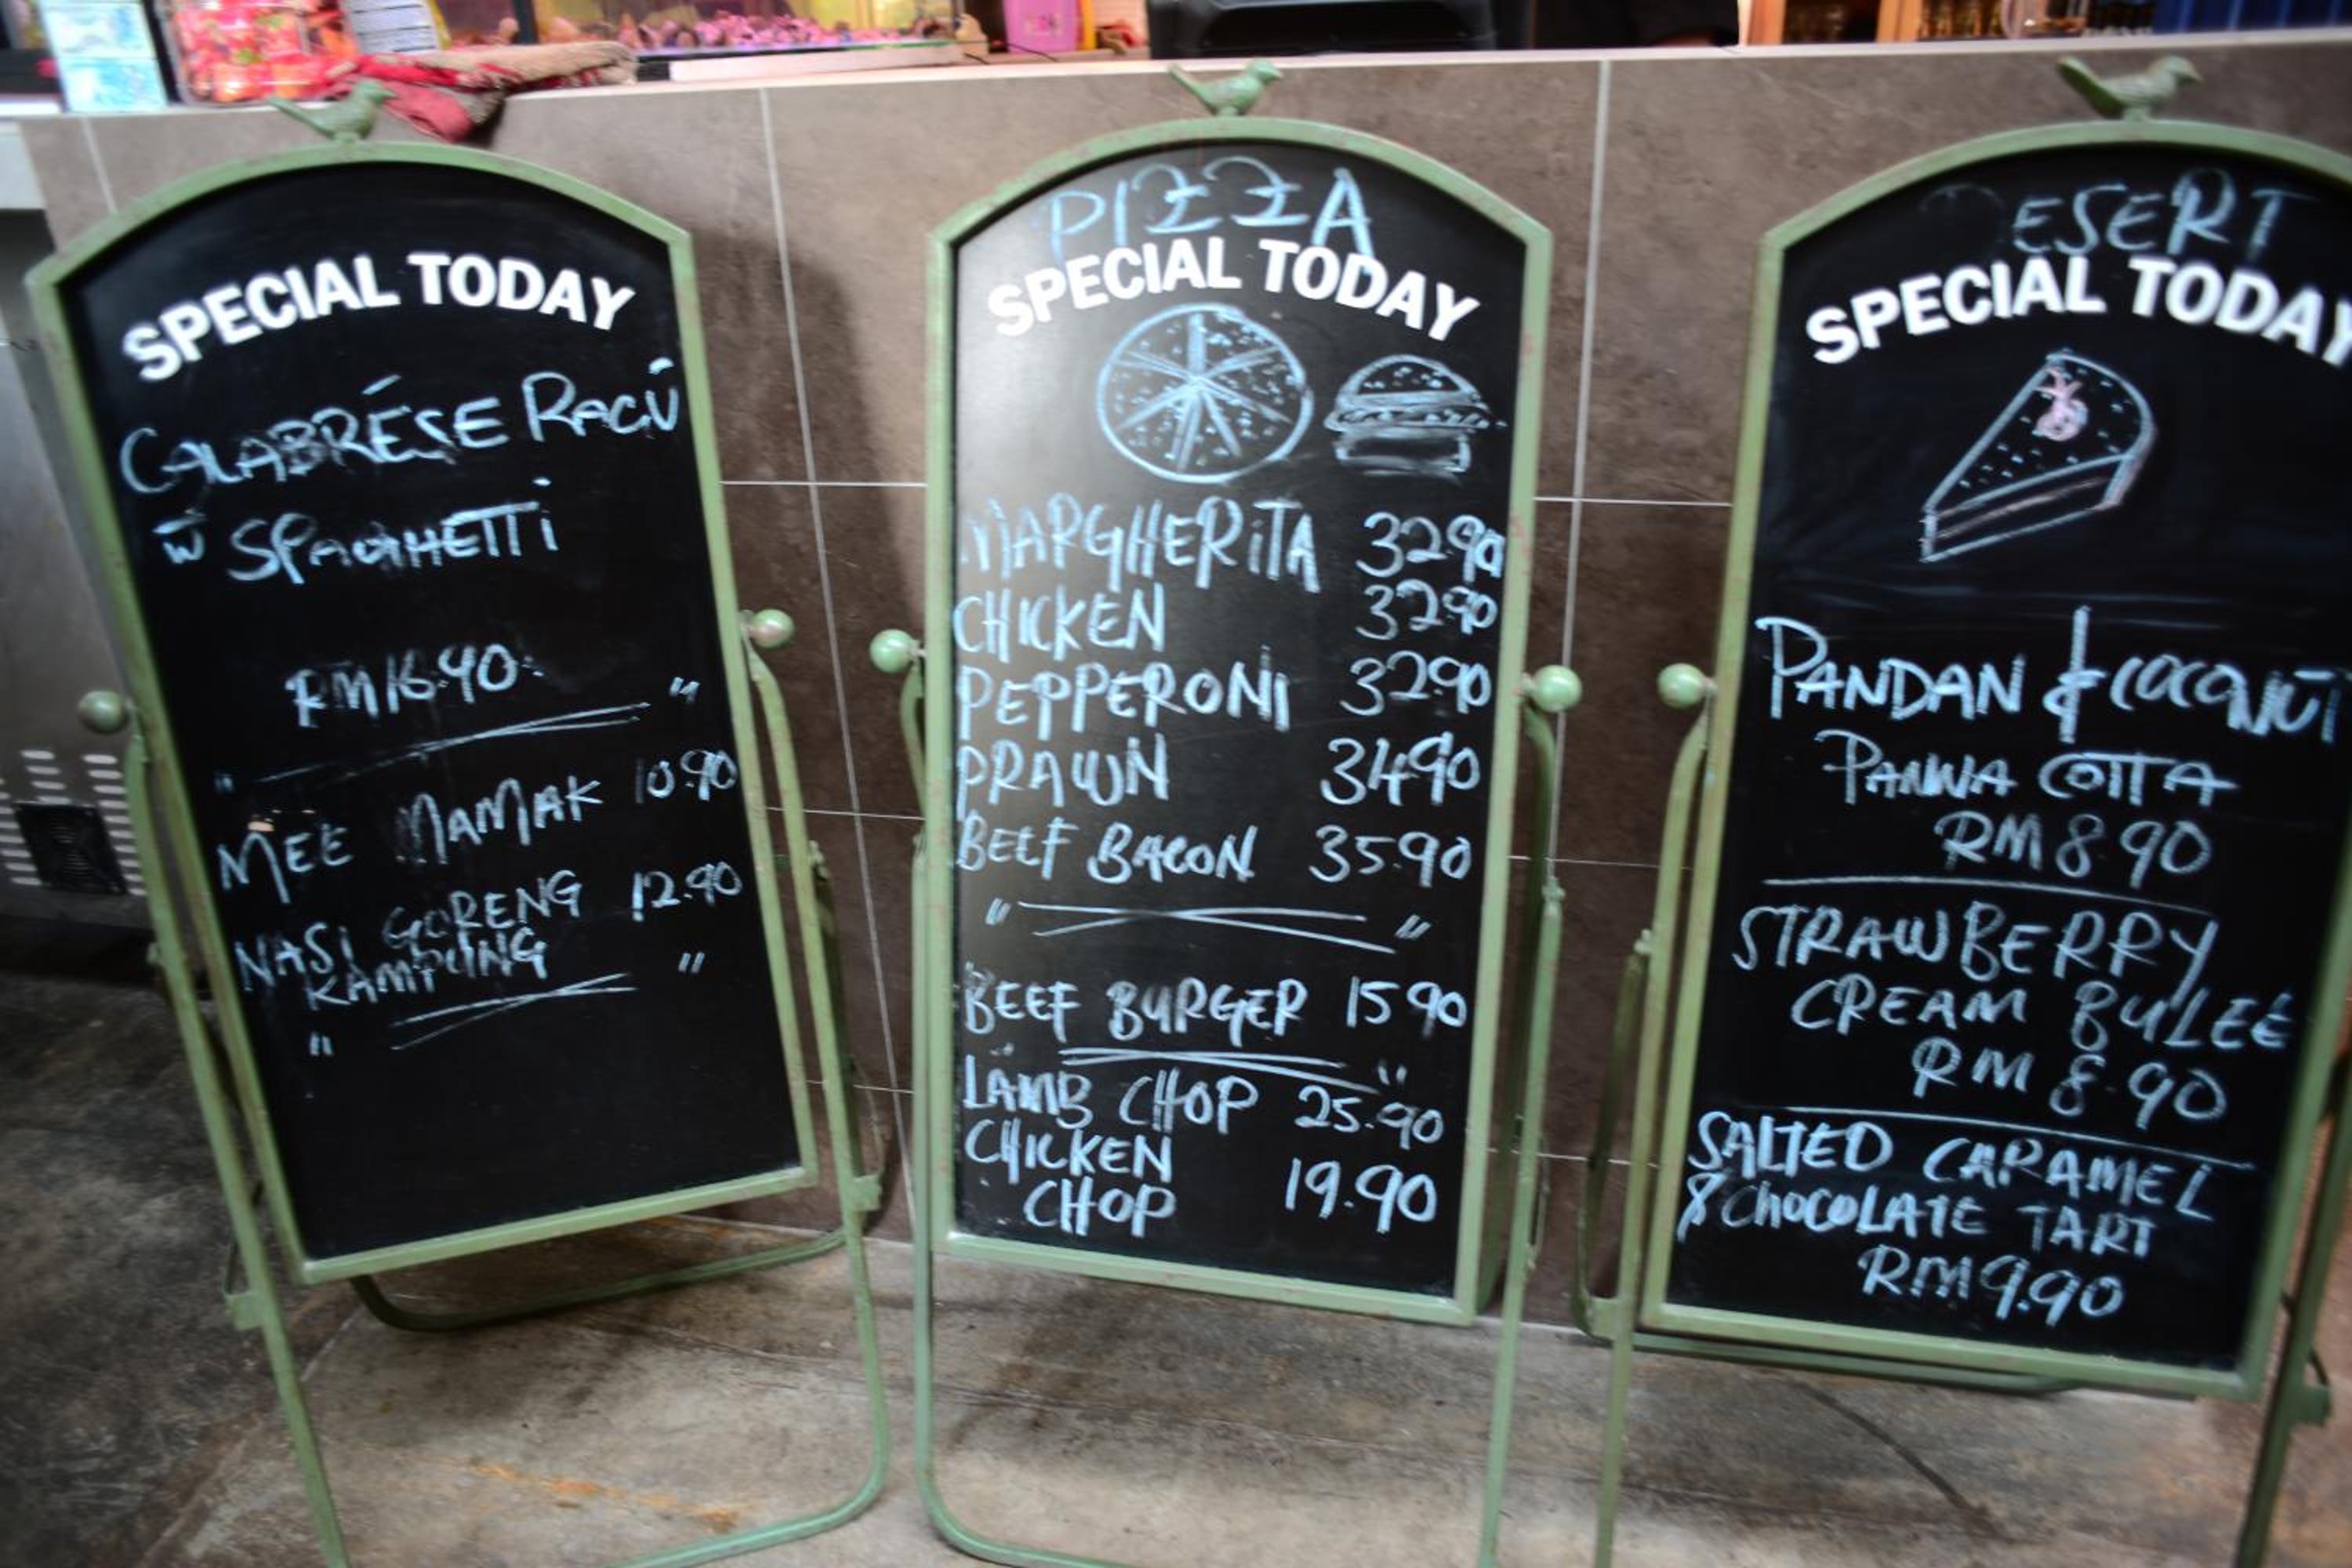 SPECIAL TODAY
CALABRÉSE RAGŪ
W̄ SPAGHETTI
RM16.90
MEE MAMAK 10.90
NASI GORENG 12.90
KAMPUNG
PIZZA
SPECIAL TODAY
MARGHERITA 3290
CHICKEN 3290
PEPPERONI 3290
PRAWN 3490
BEEF BACON 35.90
BEEF BURGER 15 90
LAMB CHOP 25.90
CHICKEN
CHOP 19.90
DESERT
SPECIAL TODAY
PANDAN & COCONUT
PANNA COTTA
RM 8.90
STRAWBERRY
CREAM BULEÉ
RM 8.90
SALTED CARAMEL
& CHOCOLATE TART
RM9.90